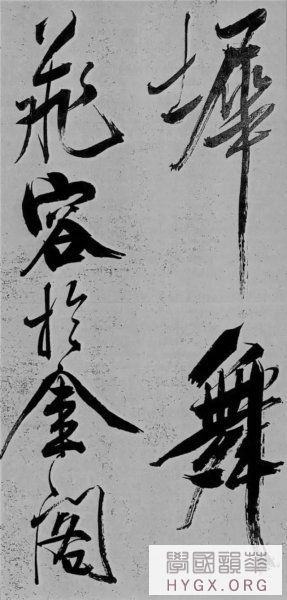 墀舞
飛容於金閣
華韻國學
HYGX.ORG